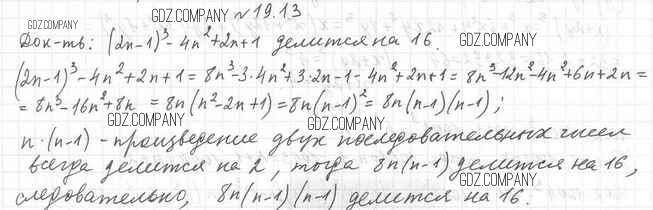 GDZ.COMPANY № 19.13
GDZ.COMPANY
Док-ть: (2n-1)³ - 4n² + 2n + 1 делится на 16. GDZ.COMPANY
(2n-1)³ - 4n² + 2n + 1 = 8n³ - 3·4n² + 3·2n - 1 - 4n² + 2n + 1 = 8n³ - 12n² - 4n² + 6n + 2n =
GDZ.COMPANY
= 8n³ - 16n² + 8n = 8n(n² - 2n + 1) = 8n(n-1)² = 8n(n-1)(n-1);
GDZ.COMPANY
n·(n-1) - произведение двух последовательных чисел
всегда делится на 2, тогда 8n(n-1) делится на 16,
GDZ.COMPANY GDZ.COMPANY
следовательно, 8n(n-1)(n-1) делится на 16.